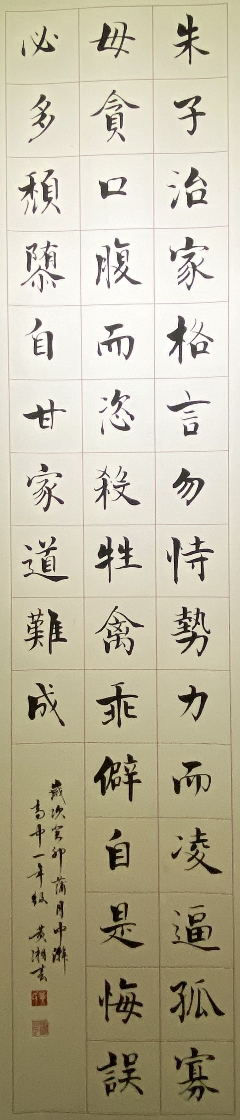 朱子治家格言勿恃勢力而凌逼孤寡
毋貪口腹而恣殺牲禽乖僻自是悔誤
必多頹隳自甘家道難成
歲次癸卯蒲月中澣
高中一年級 黃湘云